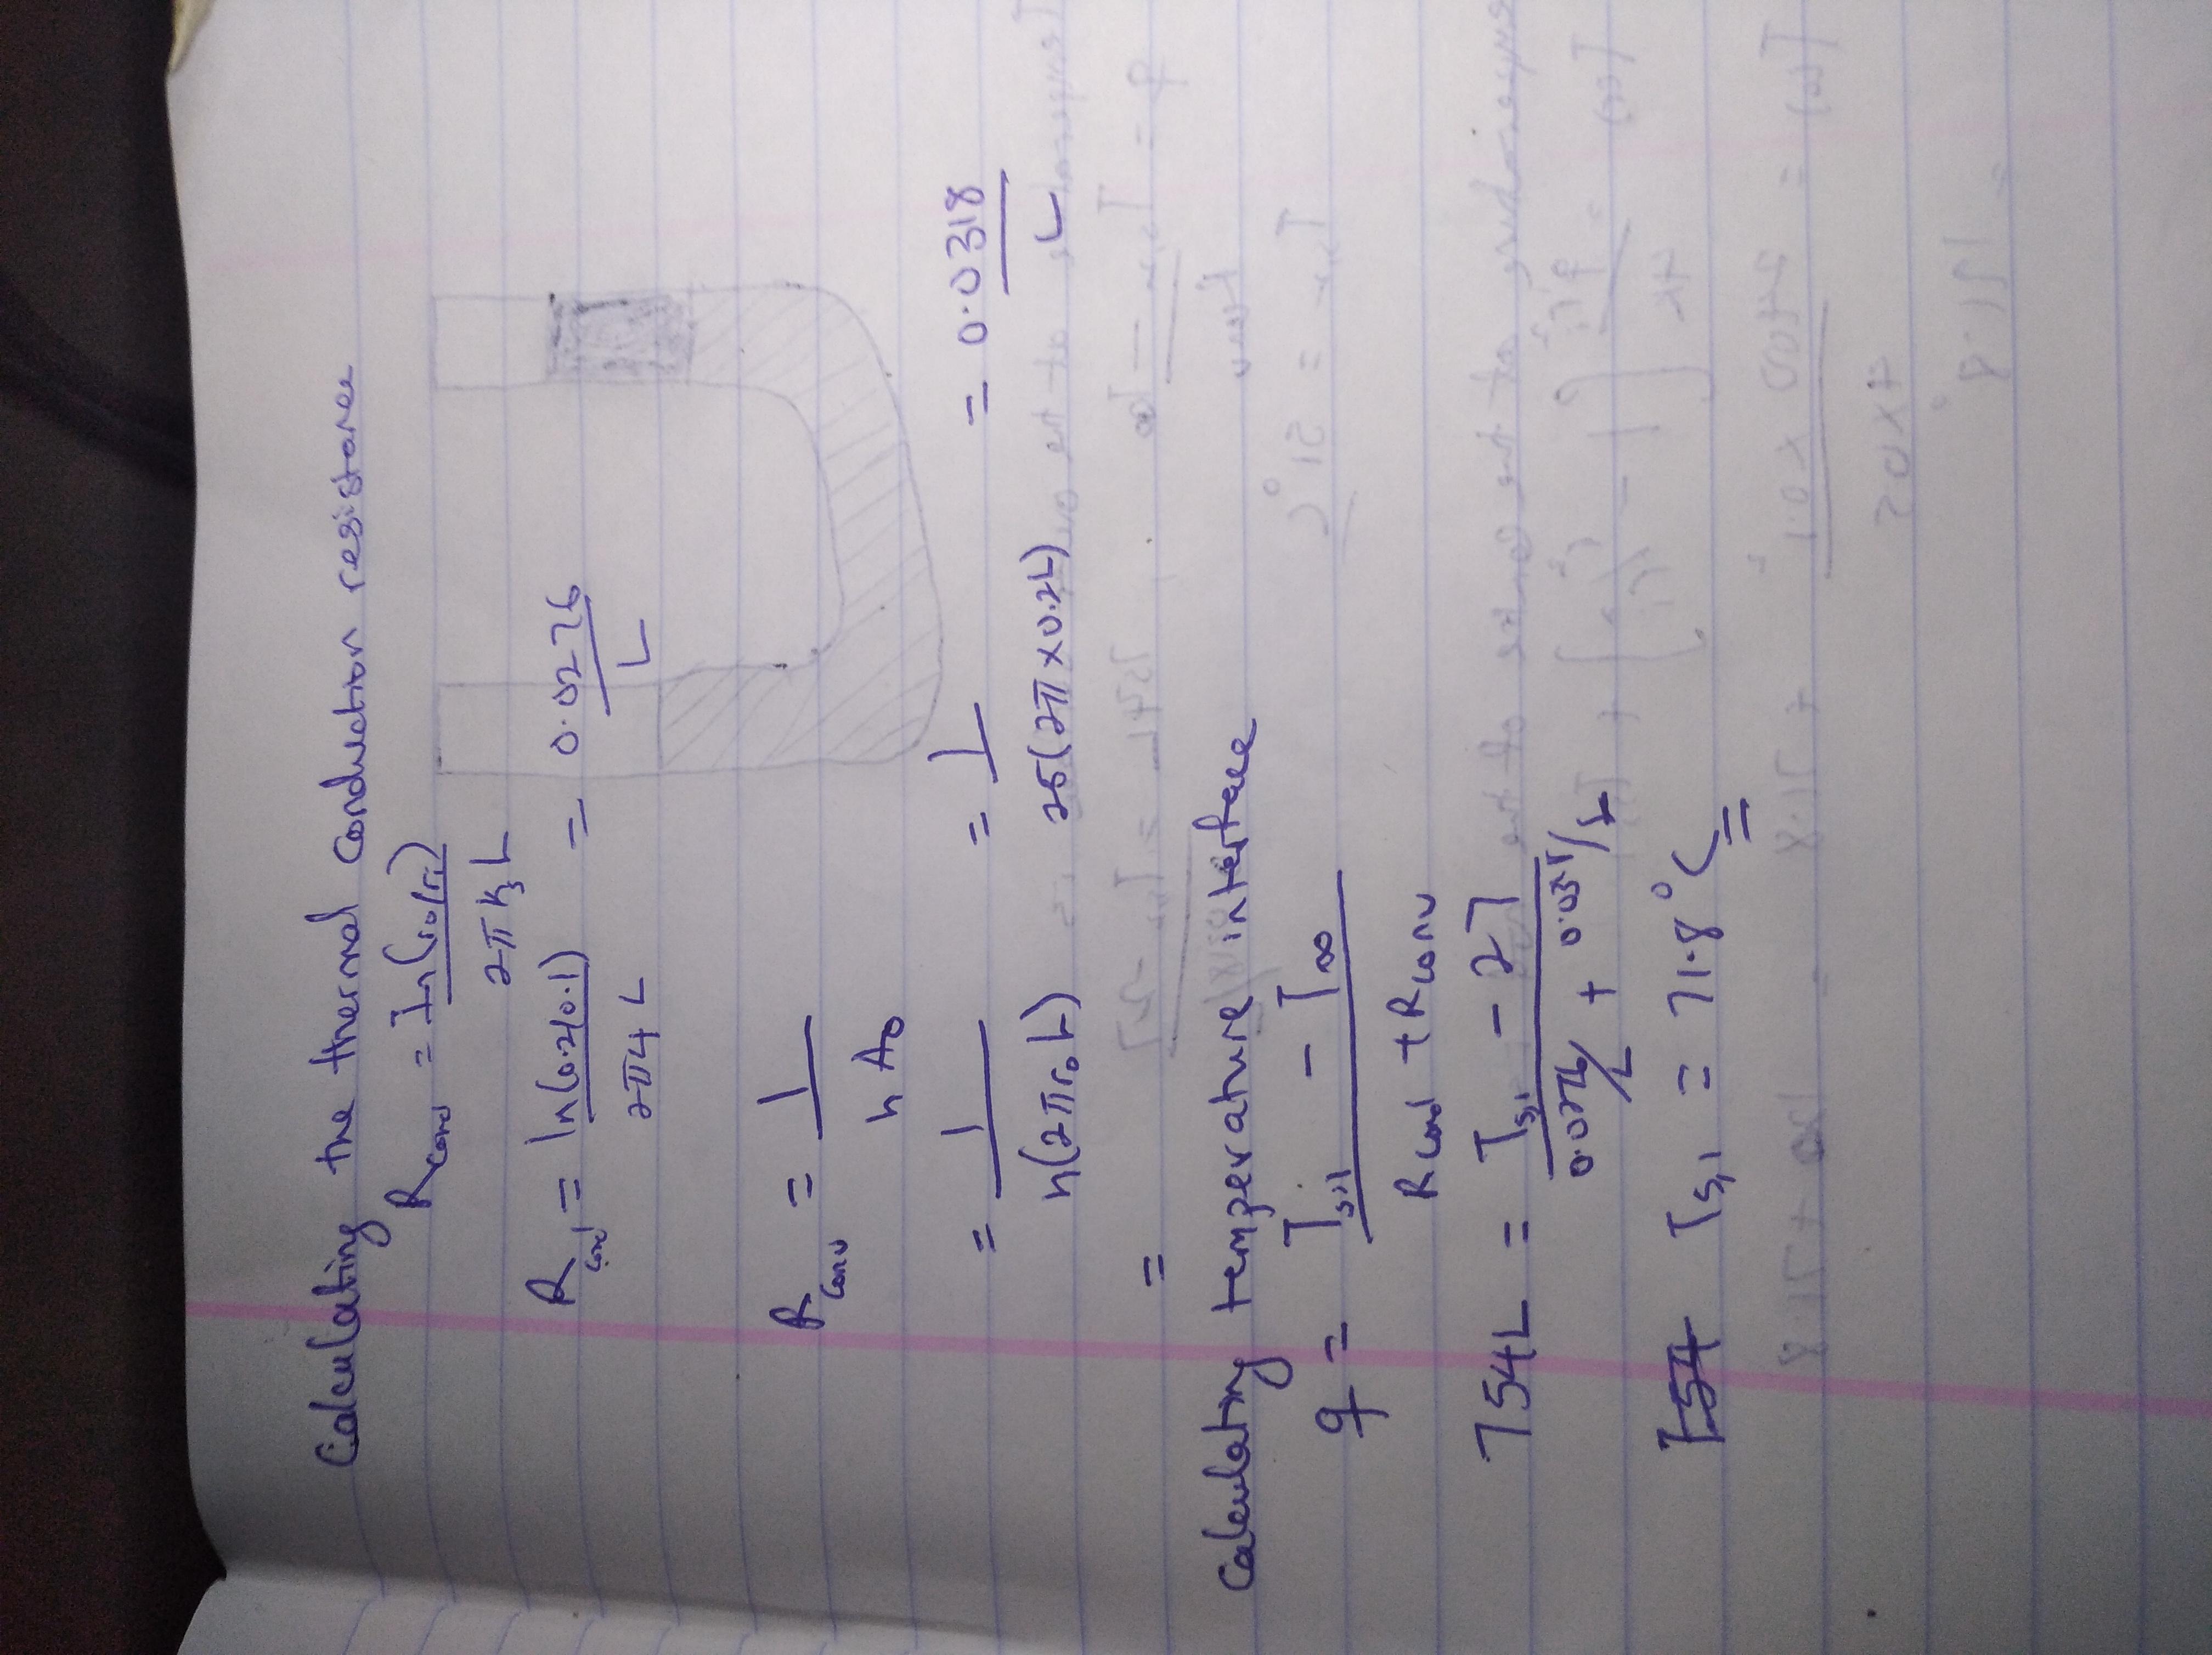 Calculating the thermal conduction resistance
R_cond = ln(ro/ri) / 2πK3L
R_cond = ln(0.2/0.1) / 2π4L = 0.0276 / L
R_conv = 1 / hAo
= 1 / h(2πroL) = 1 / 25(2π×0.2L) = 0.0318 / L
=
Calculating temperature interface
q = Ts,1 - T∞ / Rcond + Rconv
754L = Ts,1 - 27 / 0.0276/L +
Ts,1 = 71.8°C